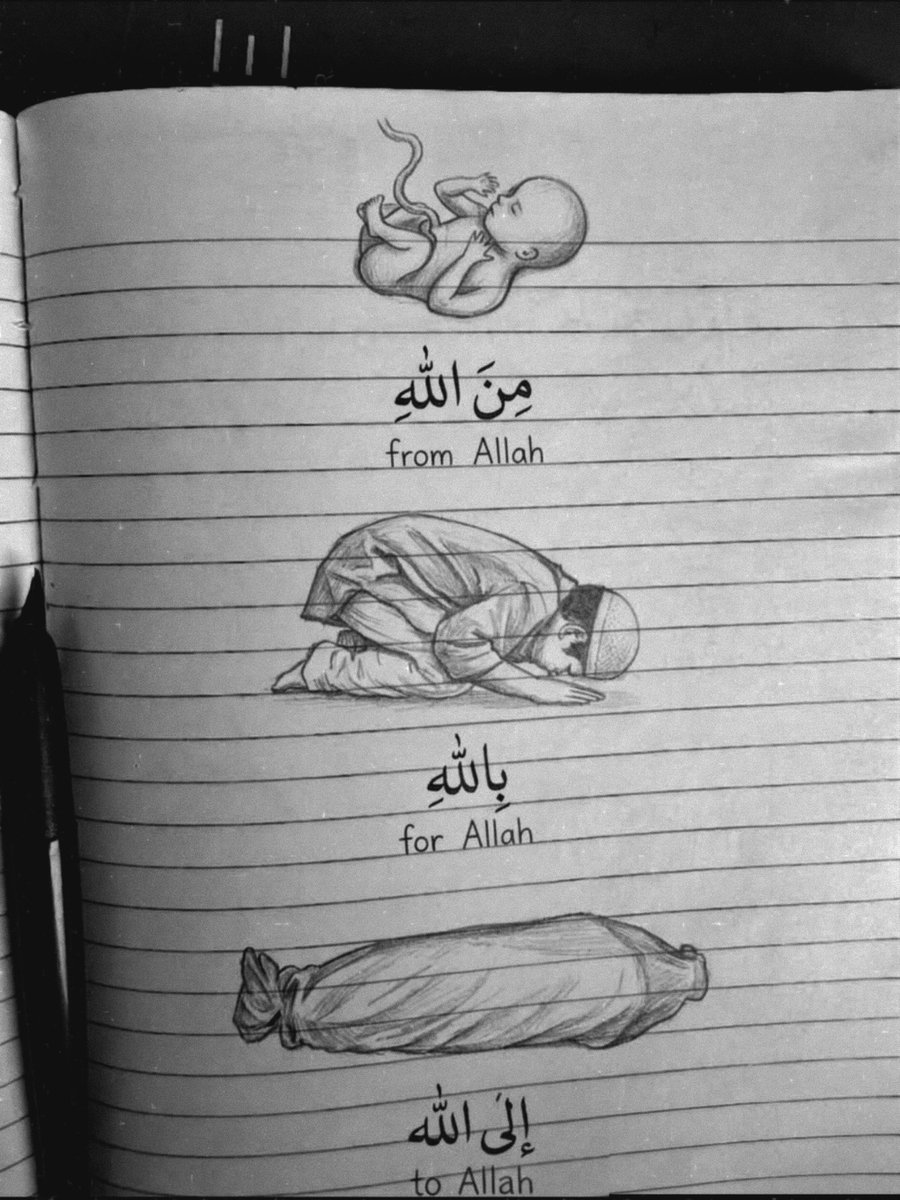 مِنَ اللهِ
from Allah
بِاللهِ
for Allah
إِلَى الله
to Allah